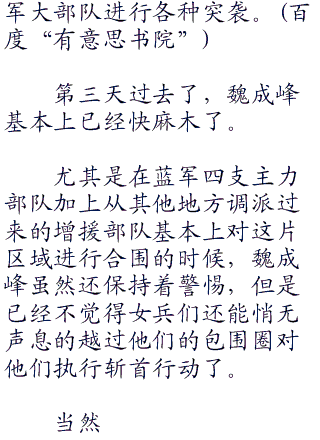 军大部队进行各种突袭。(百
度“有意思书院”)
第三天过去了，魏成峰
基本上已经快麻木了。
尤其是在蓝军四支主力
部队加上从其他地方调派过
来的增援部队基本上对这片
区域进行合围的时候，魏成
峰虽然还保持着警惕，但是
已经不觉得女兵们还能悄无
声息的越过他们的包围圈对
他们执行斩首行动了。
当然